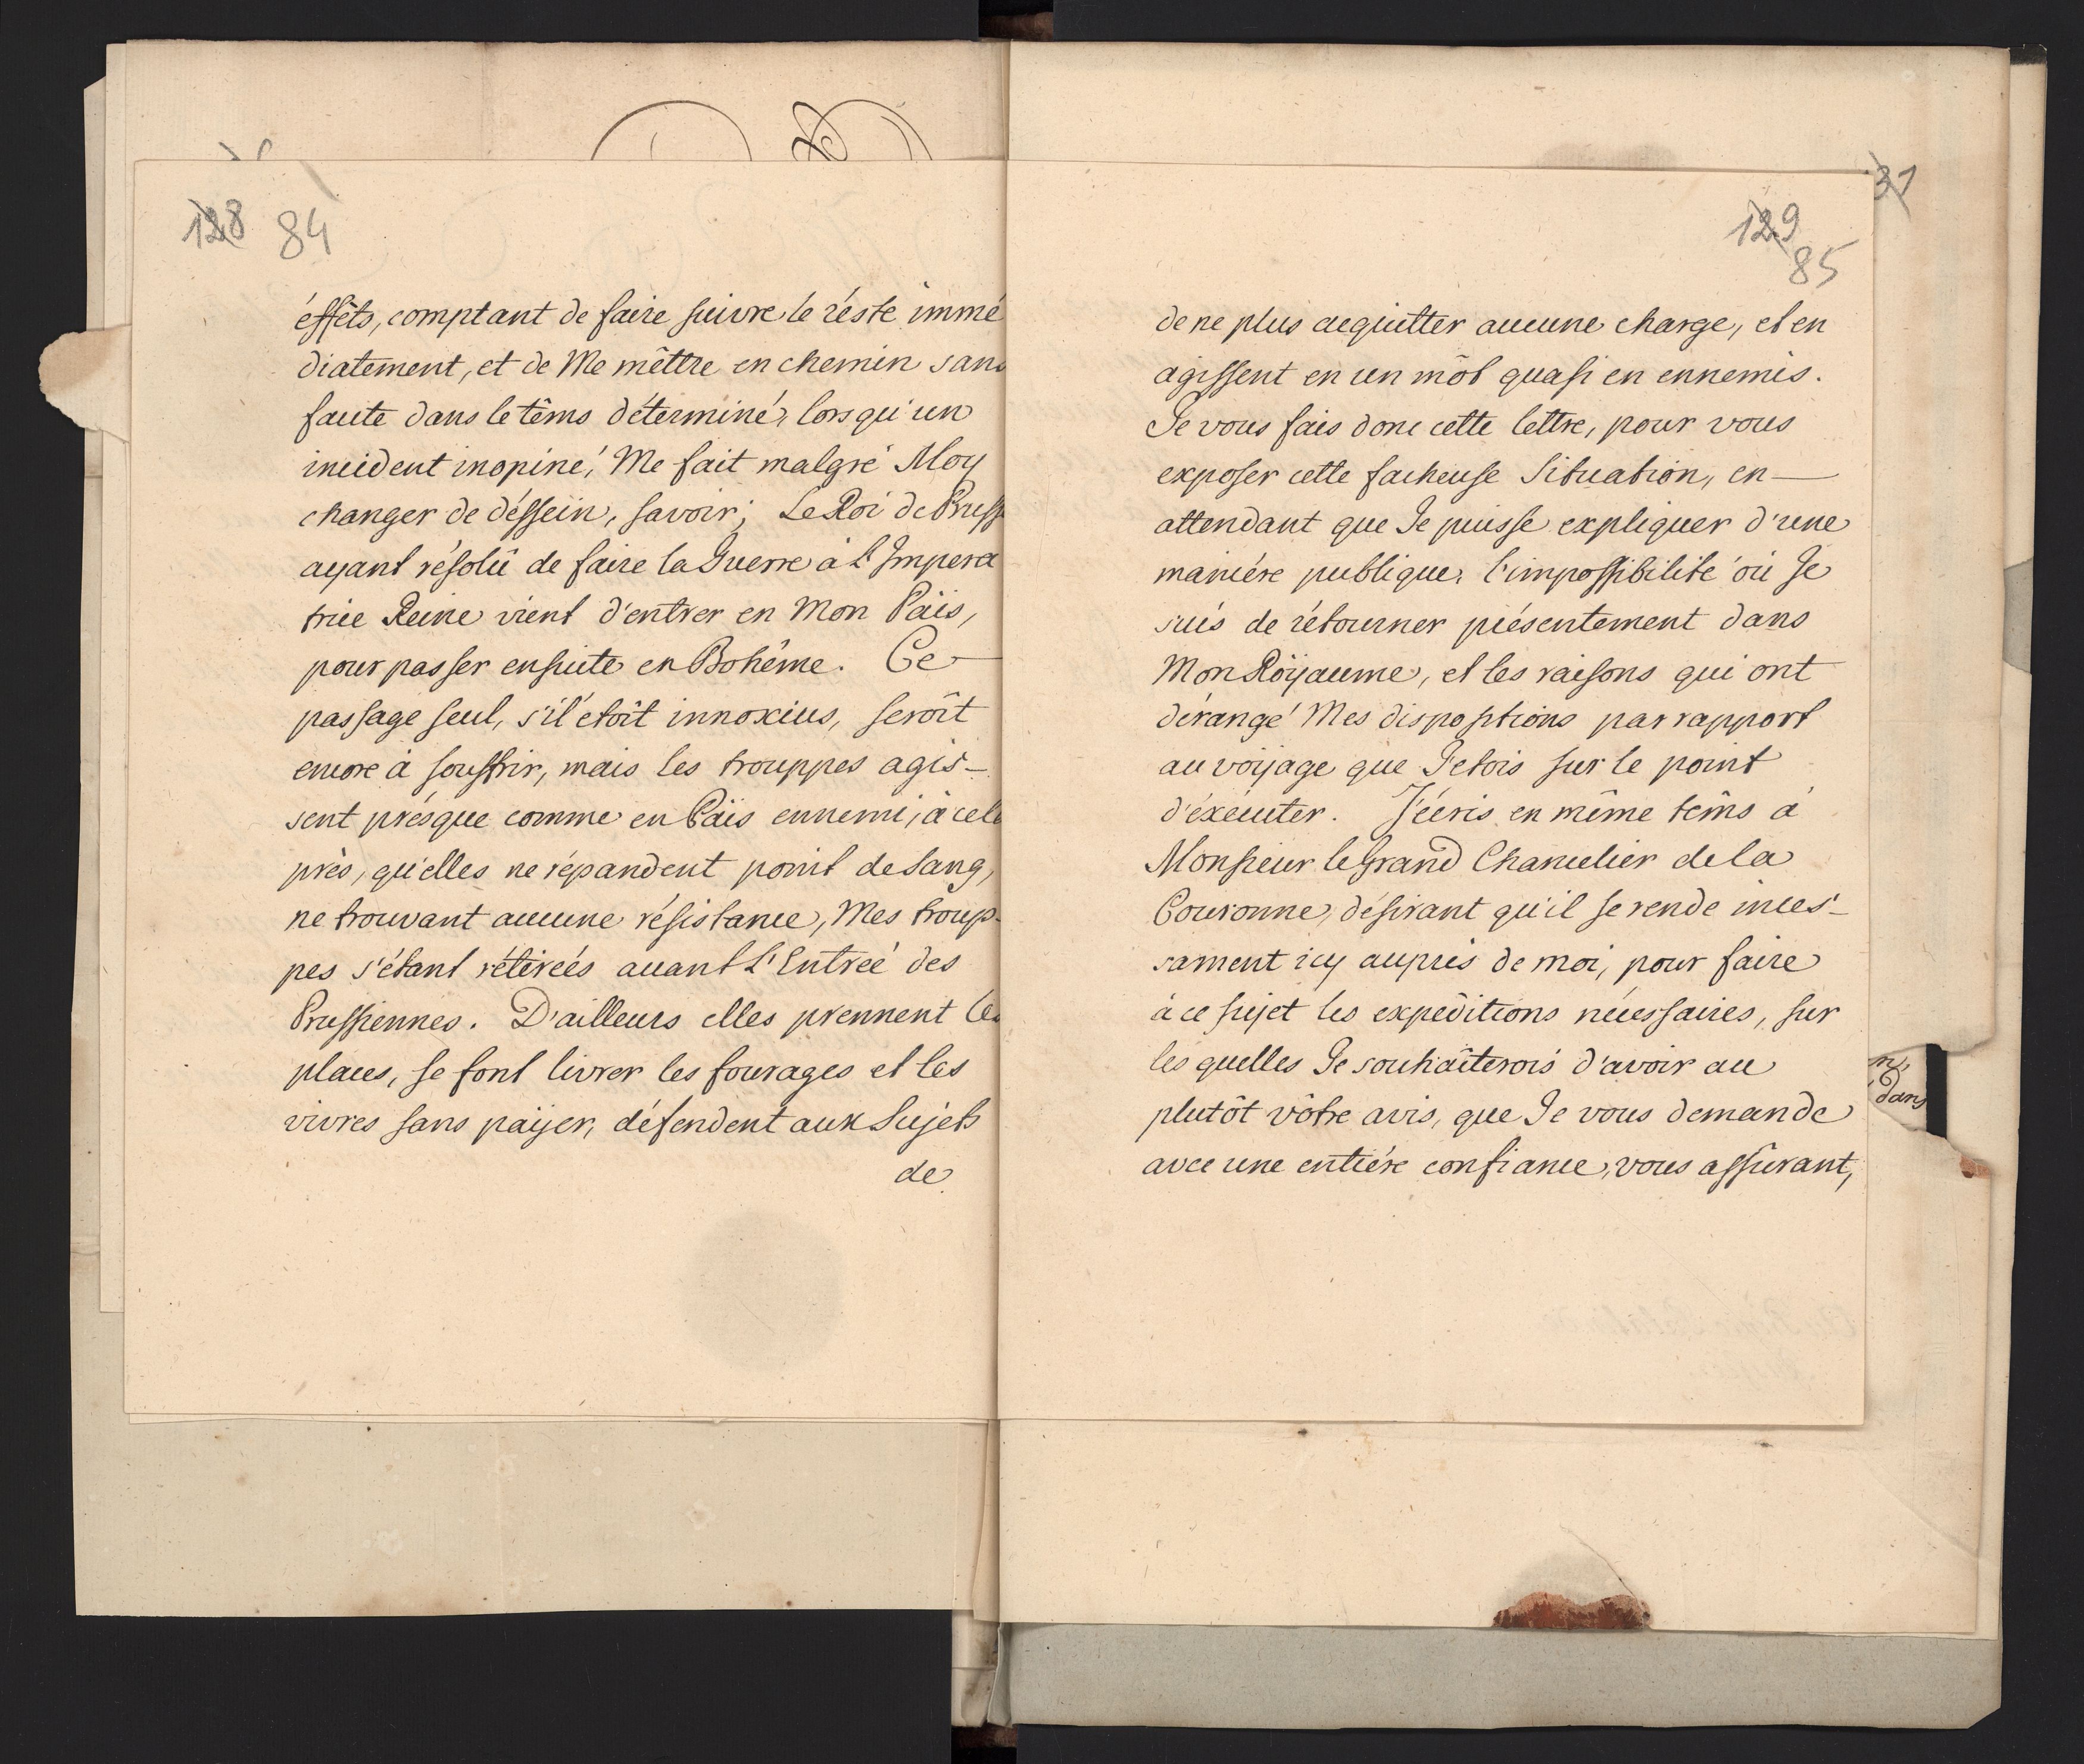 128 84
éffêts, comptant de faire suivre le réste immé
diatement, et de Me mêttre en chemin sans
faute dans le têms déterminé, lorsqu'un
incident inopiné, Me fait malgré Moy
changer de déssein, savoir; Le Roi de Pruss
ayant résolû de faire la Guerre à L'Impera
trice Reine vient d'entrer en Mon Païs,
pour passer ensuite en Bohême. Ce
passage seul, s'il étoît innoxius, seroît
encore à souffrir, mais les trouppes agis-
sent présque comme en Païs ennemi, à cela
près, qu'elles ne répandent point de sang,
ne trouvant aucune résistance, Mes troup-
pes s'étant rétireés avant L'Entreé des
Prussiennes. D'ailleurs elles prennent les
places, se font livrer les fourages et les
vivres sans païjer, défendent aux Sujets
de
129
85
31
de ne plus acquitter aucune charge, et en
agissent en un môt quasi en ennemis.
Je vous fais donc cette lettre, pour vous
exposer cette facheuse Situation, en
attendant que Je puisse expliquer d'une
maniére publique, l'impossibilité où Je
suis de rétourner présentement dans
Mon Röyaume, et les raisons qui ont
dérangé Mes dispositions par rapport
au voijage que J'etois sur le point
d'éxécuter. J'écris en même têms à
Monsieur le Grand Chancelier de la
Couronne, désirant qu'il se rende inces-
sament icy auprès de moi, pour faire
à ce sujet les expéditions nécessaires, sur
les quelles Je souhaîterois d'avoir au
plutôt vôtre avis, que Je vous demande
avec une entiére confiance, vous assûrant,
dans